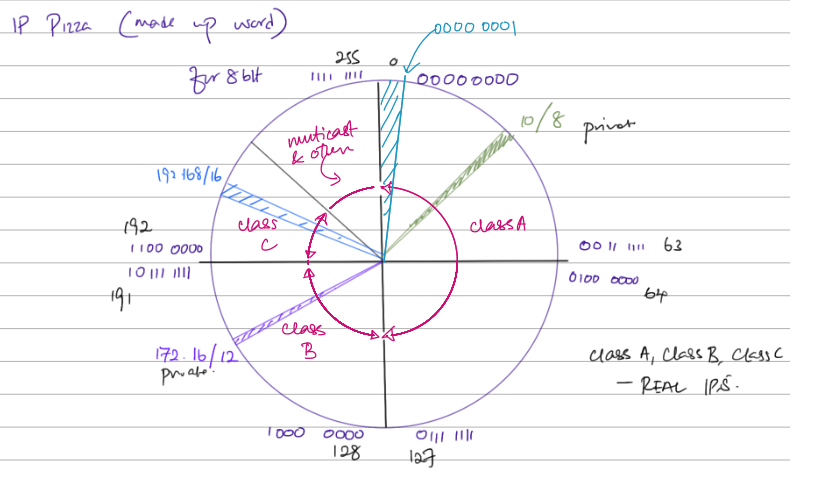 IP Pizza (made up word)
0000 0001
255
0
for 8 bit
1111 1111
00000000
10/8
private
multicast
& other
192 168/16
class
C
class A
192
1100 0000
10111 1111
191
0011 1111 63
0100 0000
64
class
B
172.16/12
private.
class A, class B, class C
— REAL IPS.
1000 0000
128
0111 1111
127